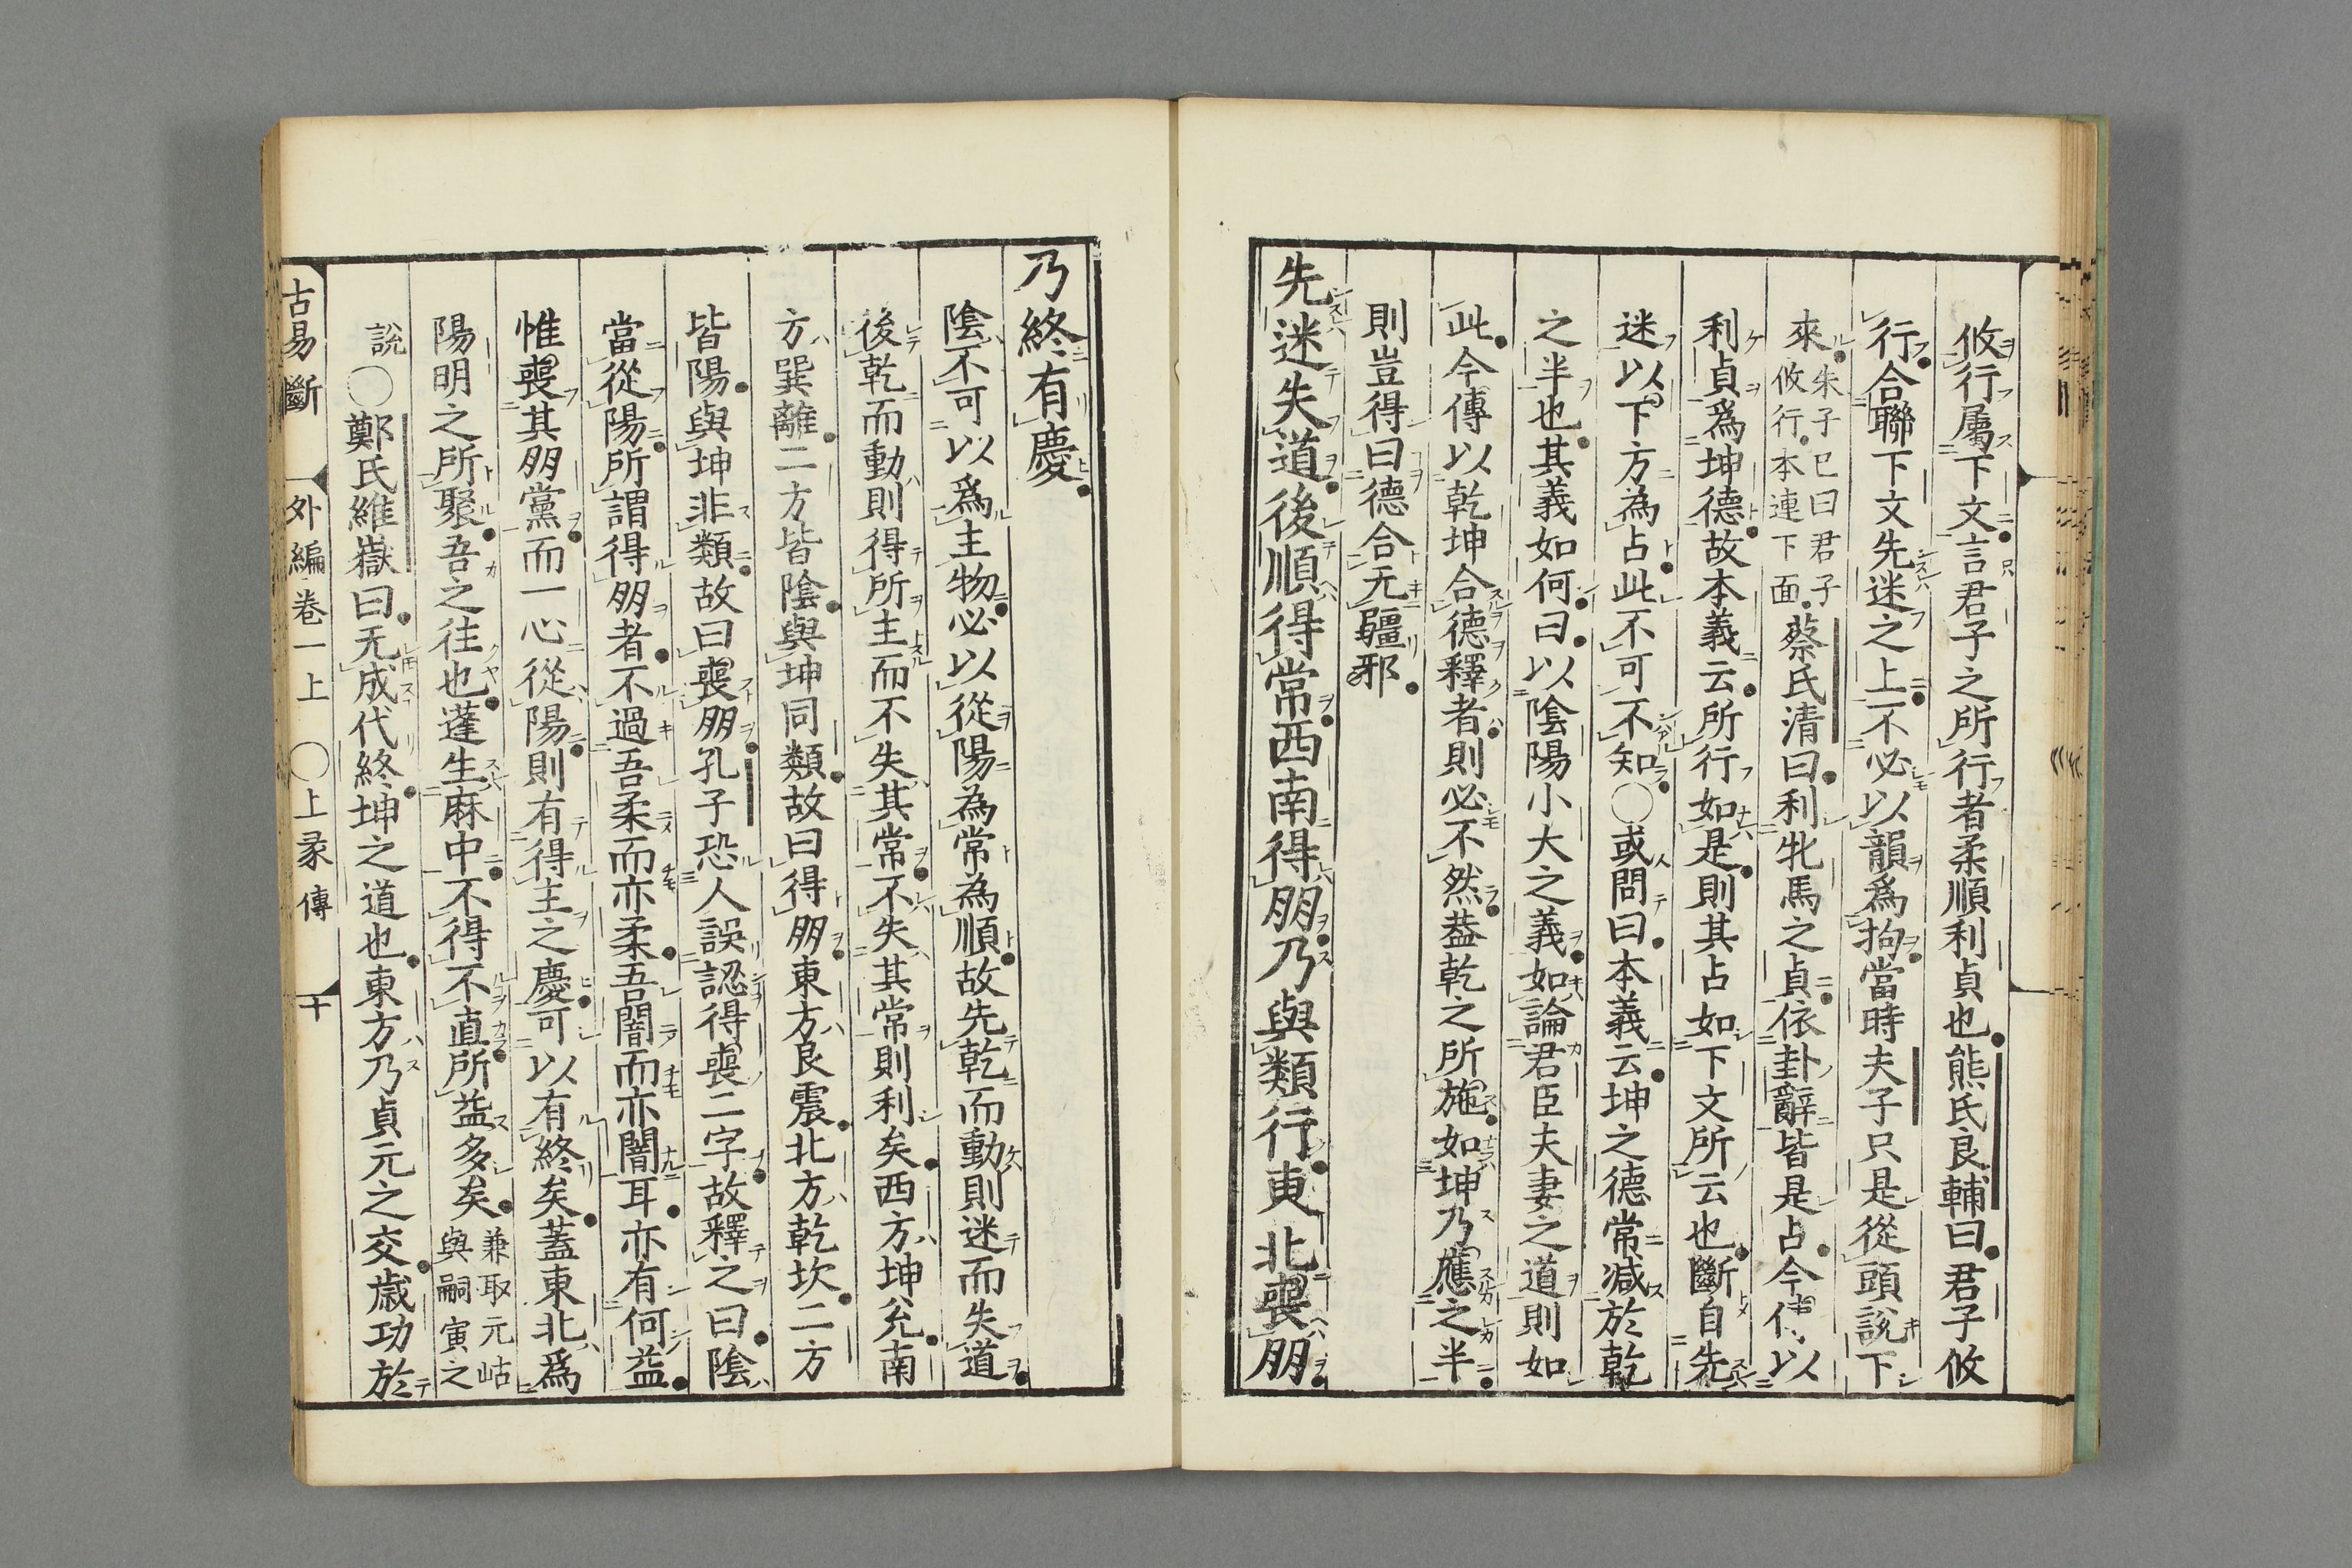 攸行屬下文言君子之所行者柔順利貞也熊氏良輔曰君子攸
行合聯下文先迷之上不必以韻爲拘當時夫子只是從頭說下
來朱子已曰君子攸行本連下面蔡氏清曰利牝馬之貞依卦辭皆是占今以
利貞爲坤德故本義云所行如是則其占如下文所云也斷自先
迷以下方為占此不可不知○或問曰本義云坤之德常減於乾
之半也其義如何曰以陰陽小大之義如論君臣夫妻之道則如
此今傳以乾坤合德釋者則必不然葢乾之所施如坤乃應之半
則豈得曰德合无疆邪
先迷失道後順得常西南得朋乃與類行東北喪朋
乃終有慶
陰不可以爲主物必以從陽為常為順故先乾而動則迷而失道
後乾而動則得所主而不失其常不失其常則利矣西方坤兊南
方巽離二方皆陰與坤同類故曰得朋東方艮震北方乾坎二方
皆陽與坤非類故曰喪朋孔子恐人誤認得喪二字故釋之曰陰
當從陽所謂得朋者不過吾柔而亦柔吾闇而亦闇耳亦有何益
惟喪其朋黨而一心從陽則有得主之慶可以有終矣蓋東北爲
陽明之所聚吾之往也蓬生麻中不得不直所益多矣兼取元岵與嗣寅之
說○鄭氏維嶽曰无成代終坤之道也東方乃貞元之交歳功於
古易斷　外編卷一上　○上彖傳　十